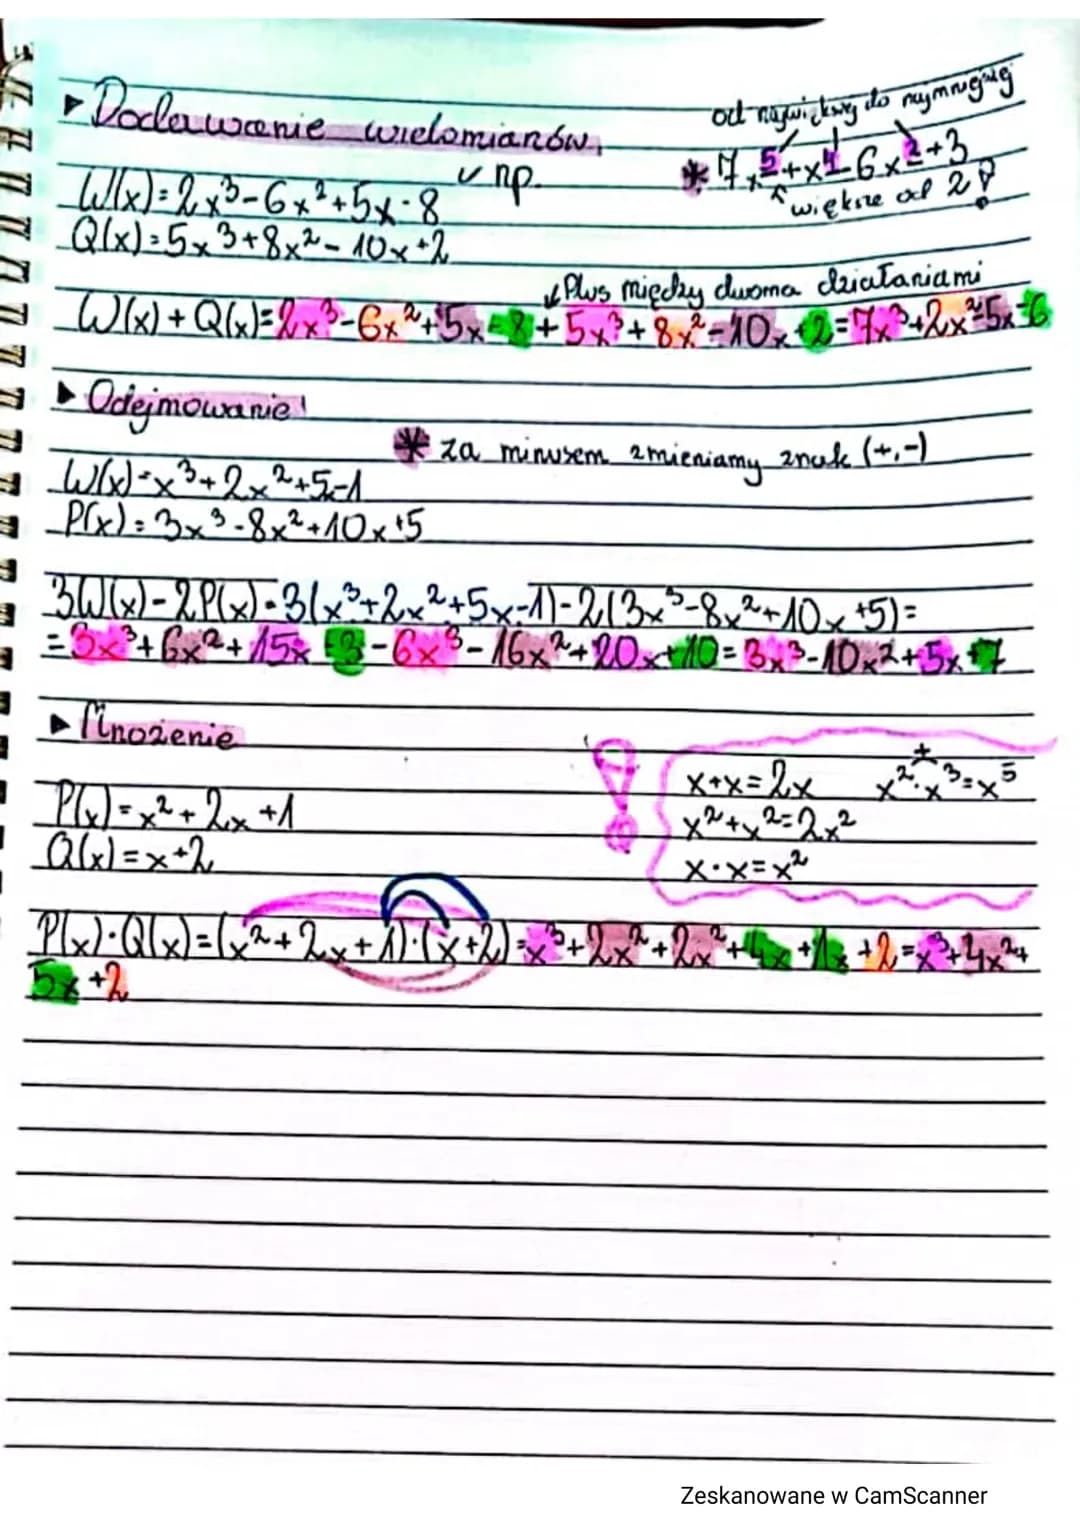 ▸ Dodawanie wielomianów
od największej do najmniejszej
np.
* 7x⁵+x⁴-6x²+3
większe od 2
W(x)=2x³-6x²+5x-8
Q(x)=5x³+8x²-10x+2
Plus między dwoma działaniami
W(x)+Q(x)=2x³-6x²+5x-8+5x³+8x²-10x+2=7x³+2x²-5x-6
▸ Odejmowanie
* za minusem zmieniamy znak (+,-)
W(x)=x³+2x²+5-1
P(x)=3x³-8x²+10x+5
3W(x)-2P(x)=3(x³+2x²+5x-1)-2(3x³-8x²+10x+5)=
=3x³+6x²+15x-3-6x³-16x²+20x+10=3x³-10x²+5x+7
▸ Mnożenie
x+x=2x x²·x³=x⁵
+
P(x)=x²+2x+1
x²+x²=2x²
Q(x)=x+2
x·x=x²
P(x)·Q(x)=(x²+2x+1)·(x+2)=x³+2x²+2x²+4x+1x+2=x³+4x²+
5x+2
Zeskanowane w CamScanner